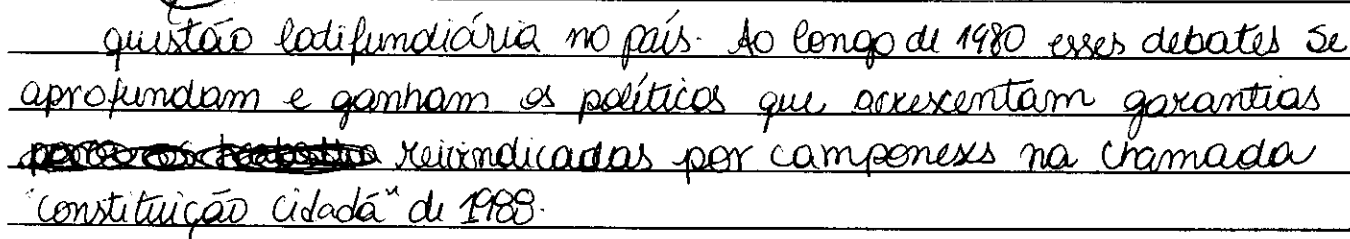 questão latifundiária no país. Ao longo de 1980 esses debates se
aprofundam e ganham os políticos que acrescentam garantias
reivindicadas por camponeses na chamada
"constituição cidadã" de 1988.